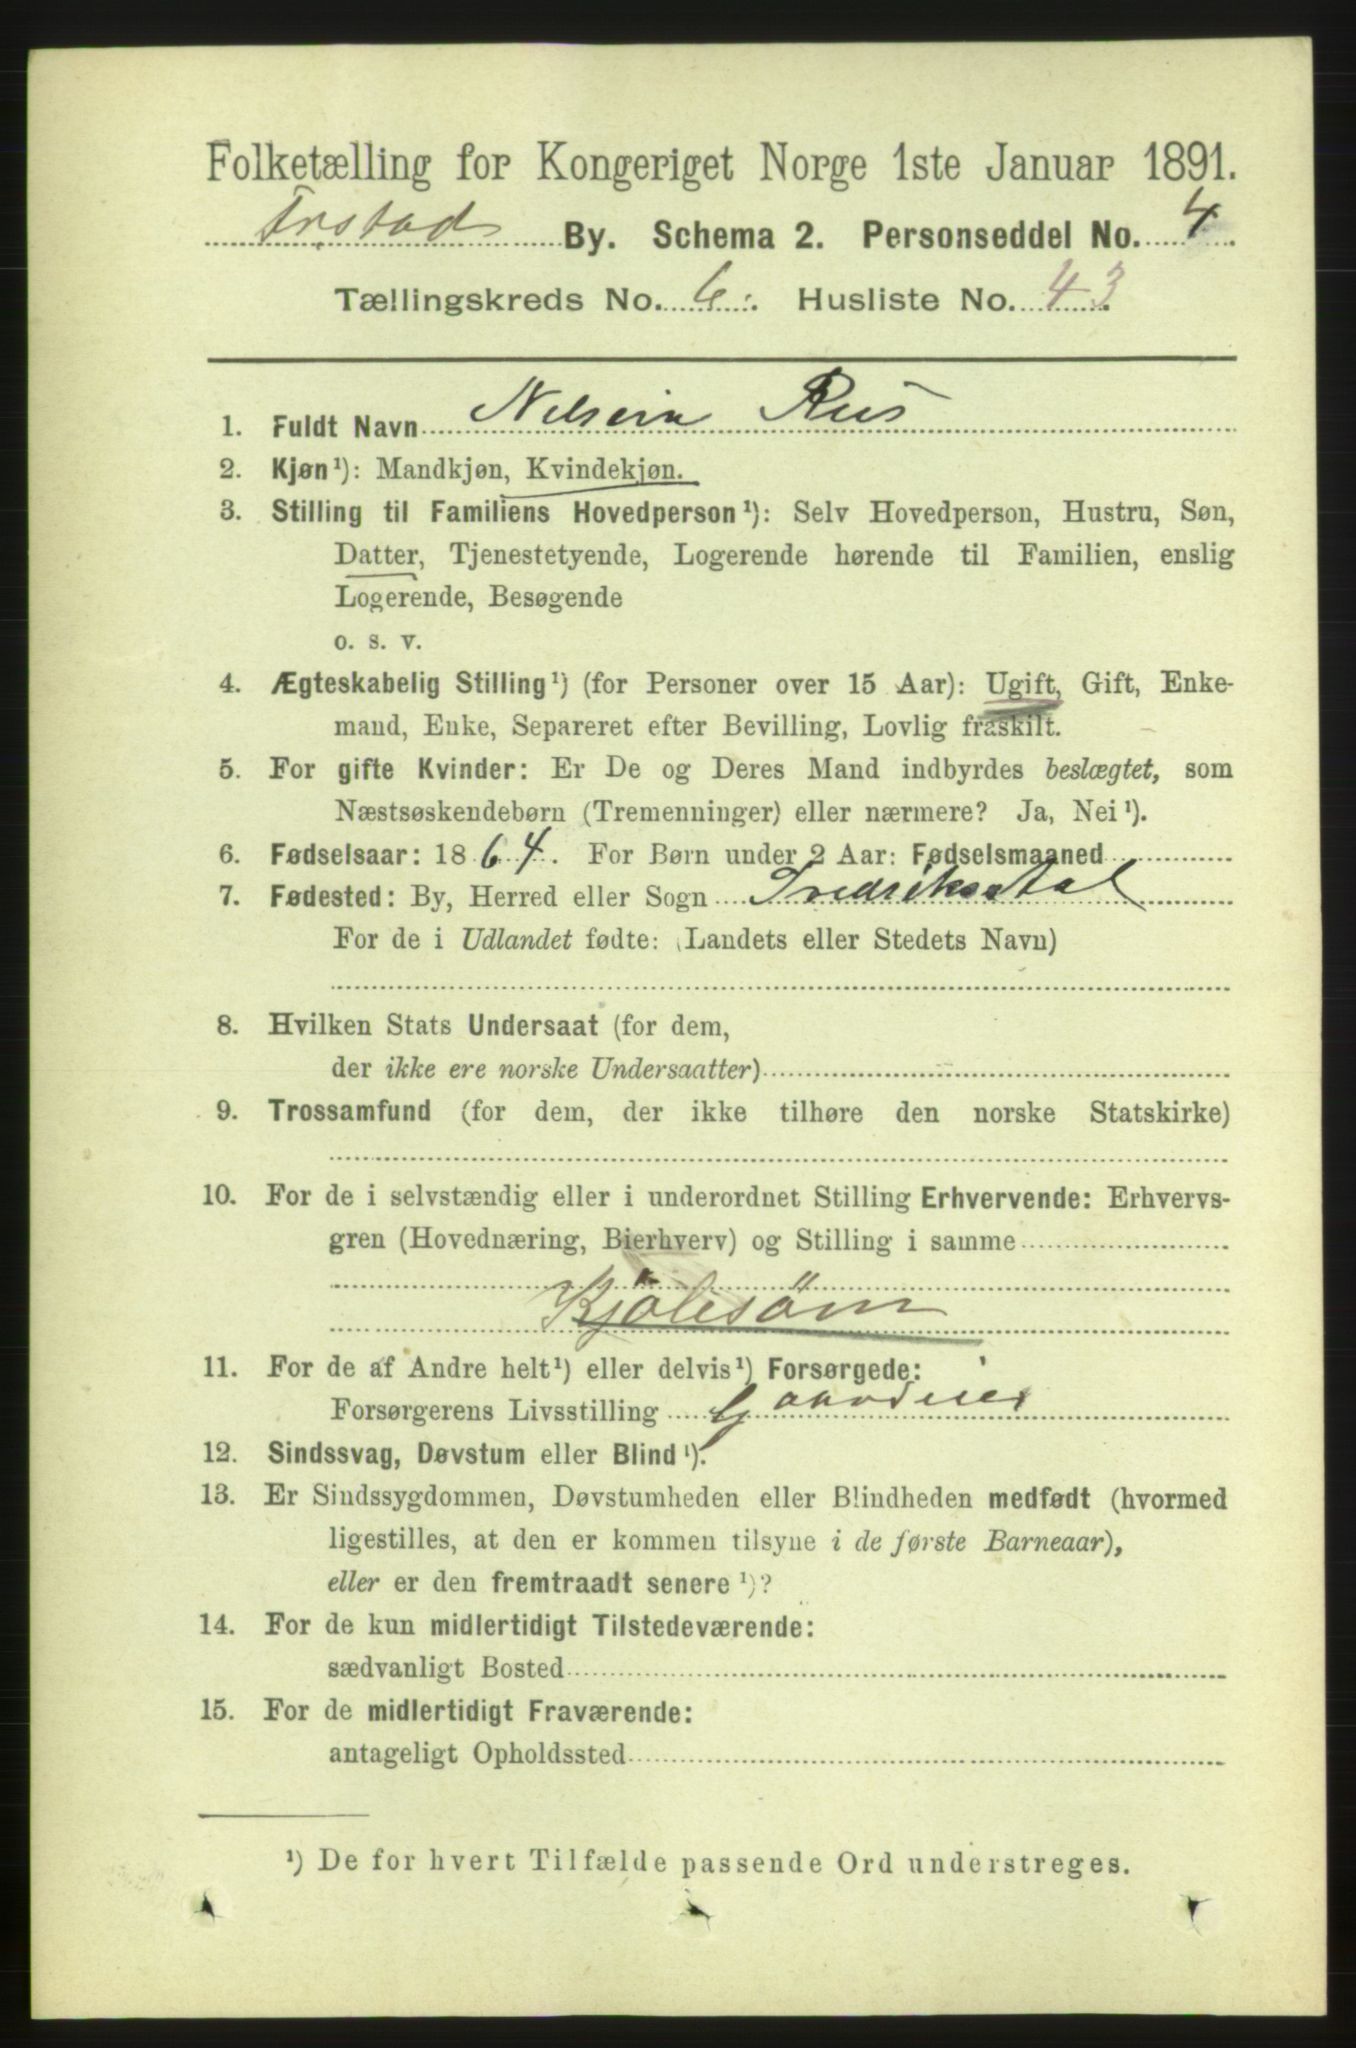 Folketælling for Kongeriget Norge 1ste Januar 1891.
Frstad By. Schema 2. Personseddel No. 4
Tællingskreds No. 6. Husliste No. 43.
1. Fuldt Navn Nilsein Riis
2. Kjøn¹): Mandkjøn, Kvindekjøn.
3. Stilling til Familiens Hovedperson¹): Selv Hovedperson, Hustru, Søn,
Datter, Tjenestetyende, Logerende hørende til Familien, enslig
Logerende, Besøgende
o. s. v.
4. Ægteskabelig Stilling¹) (for Personer over 15 Aar): Ugift, Gift, Enke-
mand, Enke, Separeret efter Bevilling, Lovlig fraskilt.
5. For gifte Kvinder: Er De og Deres Mand indbyrdes beslægtet, som
Næstsøskendebørn (Tremenninger) eller nærmere? Ja, Nei¹).
6. Fødselsaar: 1864. For Børn under 2 Aar: Fødselsmaaned
7. Fødested: By, Herred eller Sogn Fredrikstal
For de i Udlandet fødte: (Landets eller Stedets Navn)
8. Hvilken Stats Undersaat (for dem,
der ikke ere norske Undersaatter)
9. Trossamfund (for dem, der ikke tilhøre den norske Statskirke)
10. For de i selvstændig eller i underordnet Stilling Erhvervende: Erhvervs-
gren (Hovednæring, Bierhverv) og Stilling i samme
Kjolesöm
11. For de af Andre helt¹) eller delvis¹) Forsørgede:
Forsørgerens Livsstilling Gaardeier
12. Sindssvag, Døvstum eller Blind¹).
13. Er Sindssygdommen, Døvstumheden eller Blindheden medfødt (hvormed
ligestilles, at den er kommen tilsyne i de første Barneaar),
eller er den fremtraadt senere¹)?
14. For de kun midlertidigt Tilstedeværende:
sædvanligt Bosted
15. For de midlertidigt Fraværende:
antageligt Opholdssted
¹) De for hvert Tilfælde passende Ord understreges.